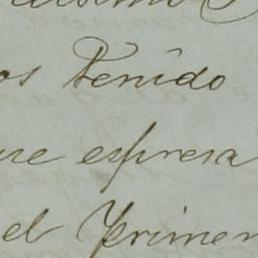 os Tenido
ue espresa
el Primer